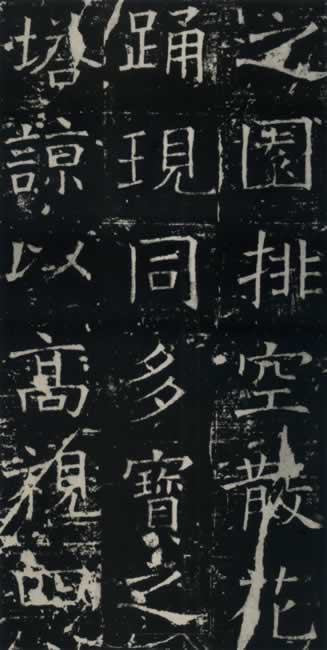 之園排空散花
踊現同多寶之
塔諒以髙視四